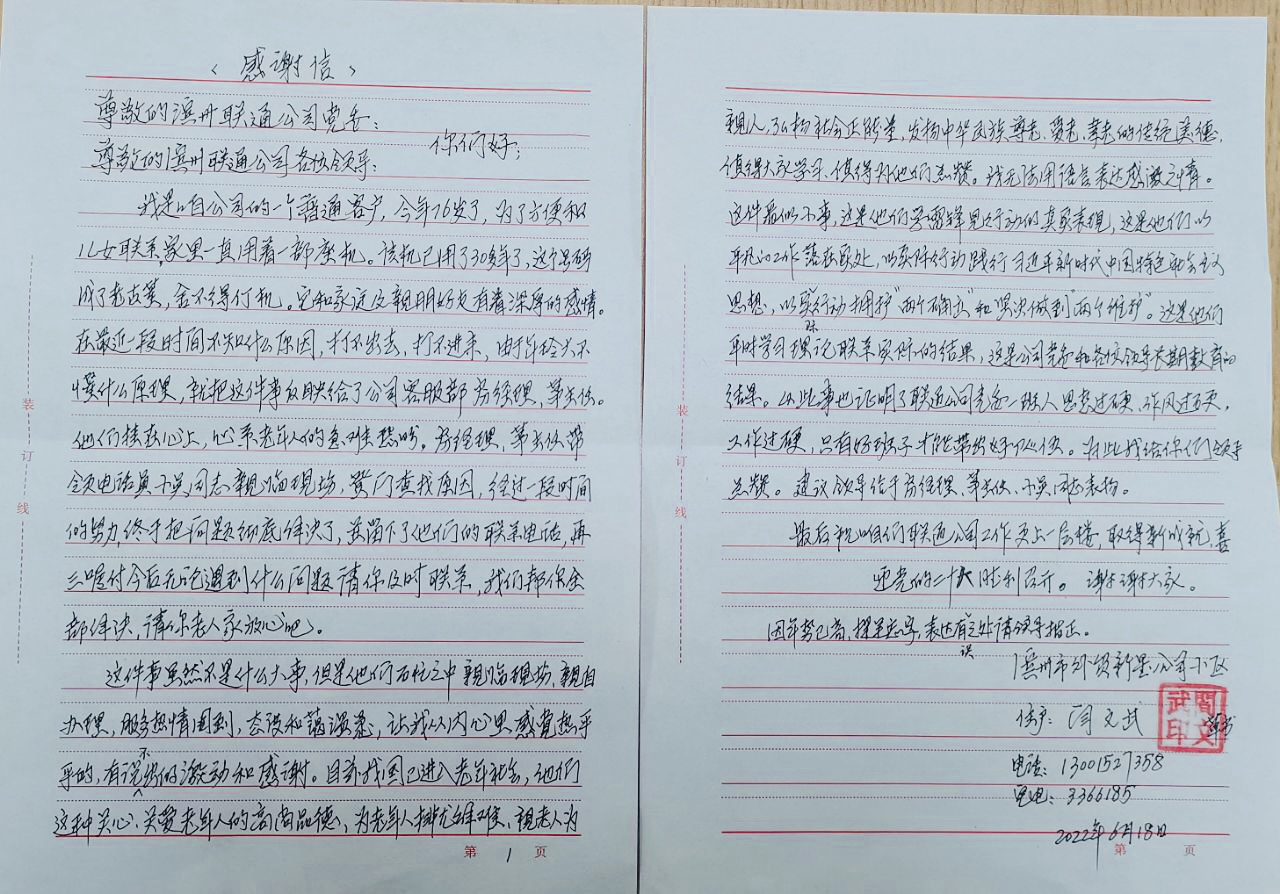 《感谢信》
尊敬的滨州联通公司党委：
你们好；
尊敬的滨州联通公司各位领导：
我是咱公司的一个普通客户，今年76岁了，为了方便和
儿女联系，家里一直用着一部座机。该机已用了30多年了，这个号码
成了老古董，舍不得付机。它和家庭及亲朋好友有着深厚的感情。
在最近一段时间不知什么原因，打不出去，打不进来，由于年龄大不
懂什么原理，就把这件事反映给了公司客服部 经理、
他们挂在心上，心系老年人的急难愁盼。 经理、 带
领电话员 吴同志亲临现场， 查找原因，经过一段时间
的努力，终于把问题彻底解决了，并留下了他们的联系电话，再
三嘱付今后无论遇到什么问题请你及时联系，我们帮你全
部解决，请你老人家放心吧。
这件事虽然不是什么大事，但是他们百忙之中亲临现场、亲自
办理，服务热情周到，态度和蔼温柔，让我从内心里感觉热乎
乎的，有说不出的激动和感谢。目前我国已进入老年社会，他们
这种关心、关爱老年人的高尚品德，为老年人排忧解难、视老人为
亲人，弘扬社会正能量，发扬中华民族尊老、爱老、孝老的传统美德，
值得大家学习、值得对他们点赞。我无法用语言表达感激之情。
这件看似小事，这是他们学雷锋见行动的真实表现，这是他们以
平凡的工作落在实处，以实际行动践行习近平新时代中国特色社会主义
思想，以实际行动拥护“两个确立”和坚决做到“两个维护”。这是他们
平时学习理论联系实际的结果，这是公司党委和各级领导长期教育的
结果。从此事也证明了联通公司党委一班人思想过硬，作风过硬，
工作过硬，只有好班子才能带出好队伍。在此我给你们领导
点赞。建议领导给于 经理、 吴同志表扬。
最后祝咱们联通公司工作更上一层楼，取得新成就，喜
迎党的二十大胜利召开。谢谢大家。
因年势已高，提笔忘字，表达有误之处请领导指正。
滨州市外贸新星公司小区
住户：闫文武
閻文武印
电话：13001527358
宅电：3366185
2022年6月18日
装订线
装订线
第1页
第 页